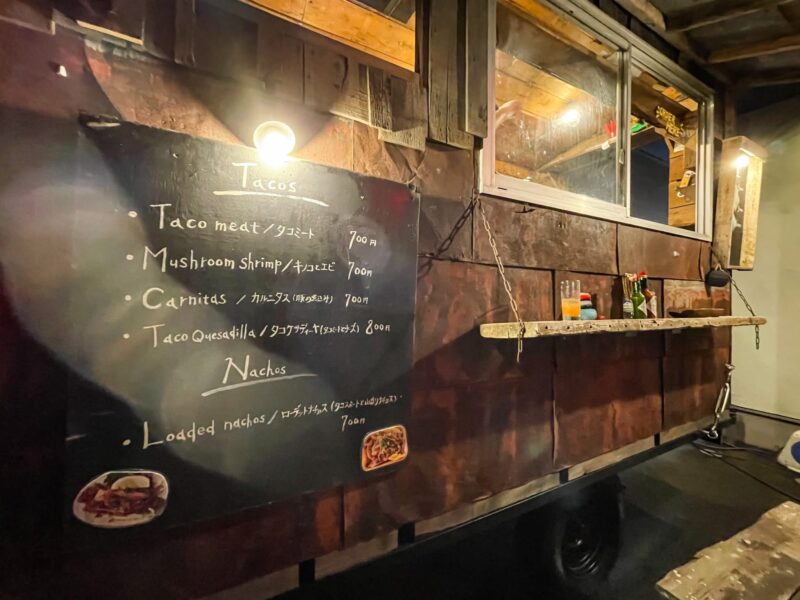 Tacos
・Taco meat/タコミート 700円
・Mushroom shrimp/キノコとエビ 700円
・Carnitas / カルニタス(豚の煮込み) 700円
・Taco Quesadilla/タコケサディーヤ(タコミートとチーズ) 800円
Nachos
・Loaded nachos/ローデッドナチョス(タコスミートと山盛りナチョス)
700円
ORDER
HERE